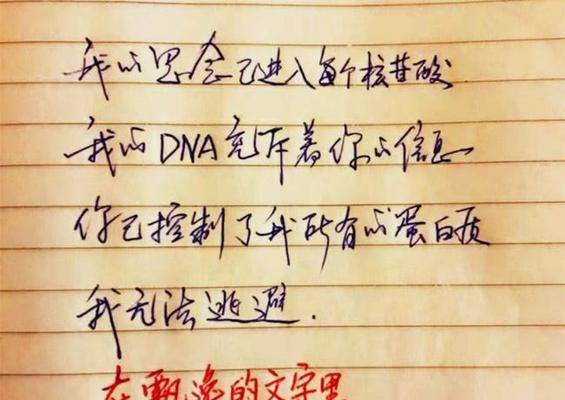 我的思念已进入每个核苷酸
我的DNA充斥着你的信息
你已控制了我所有的蛋白质
我无法逃避.
在飘逸的文字里